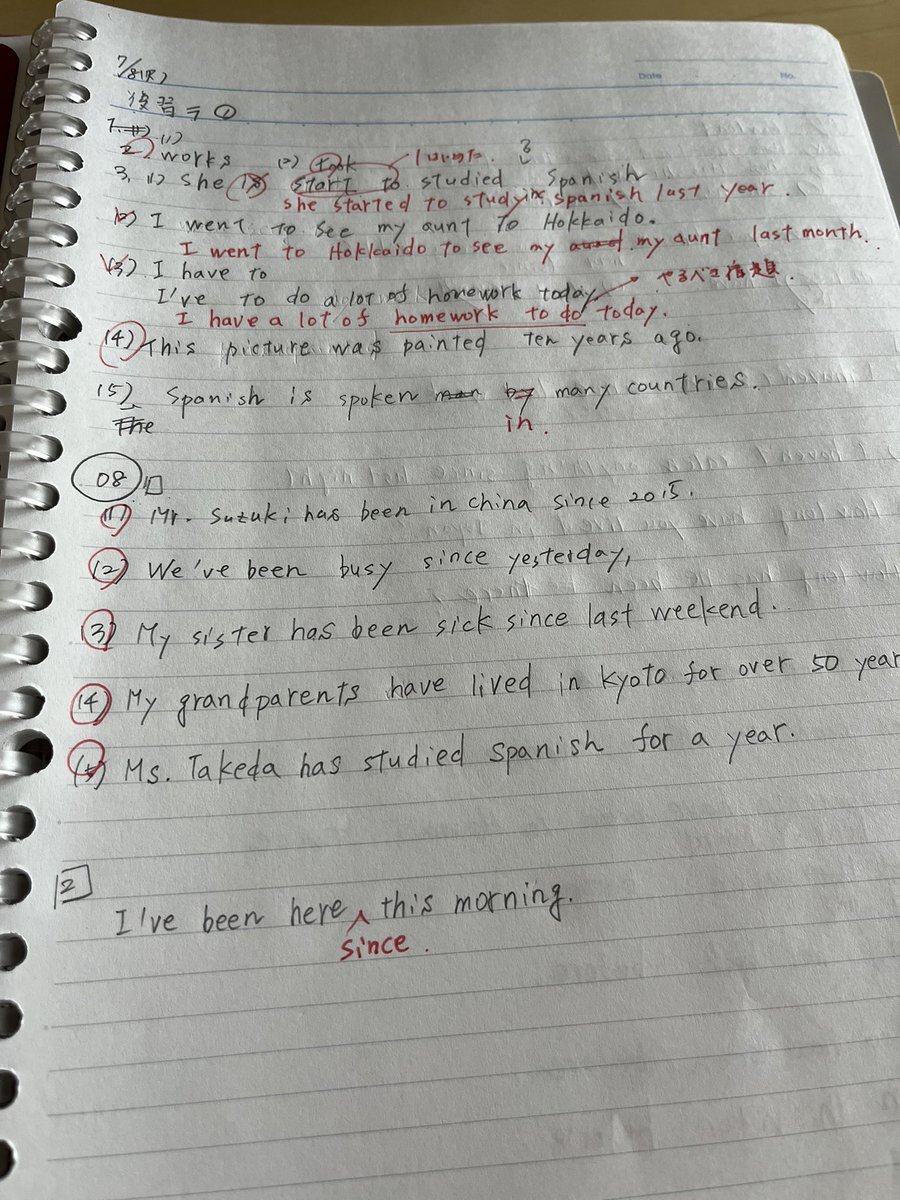 Date No.
7/8(木)
復習テ①
1. (1)
(2) works (2) took
3. (1) She is start to studied Spanish
she started to studying spanish last year.
(2) I went to see my aunt to Hokkaido.
I went to Hokkaido to see my my aunt last month.
(3) I have to
やるべき宿題.
I've to do a lot of homework today
I have a lot of homework to do today.
(4) This picture was painted ten years ago.
(5) Spanish is spoken by many countries.
The in.
08 1
(1) Mr. Suzuki has been in china since 2015.
(2) We've been busy since yesterday,
(3) My sister has been sick since last weekend.
(4) My grandparents have lived in Kyoto for over 50 year
(5) Ms. Takeda has studied spanish for a year.
2
I've been here this morning.
since.